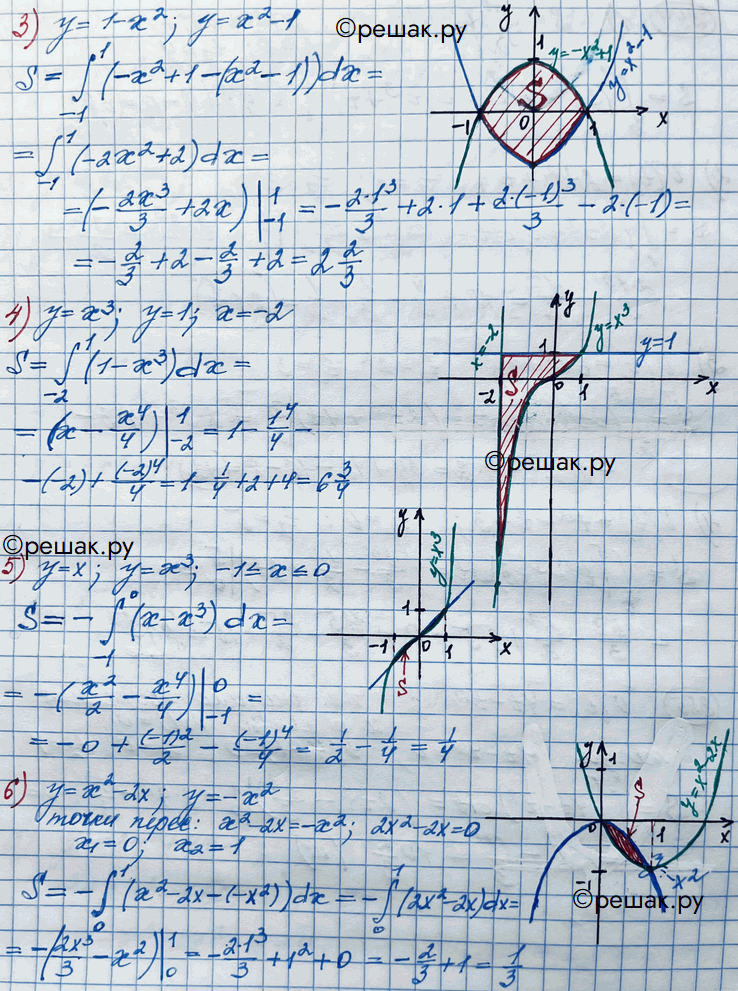 3) y = 1-x²; y = x²-1
©решак.ру
S = ∫₋₁¹ (-x²+1-(x²-1))dx =
= ∫₋₁¹ (-2x²+2)dx =
= (-2x³/3 + 2x) |₋₁¹ = -2·1³/3 + 2·1 + 2·(-1)³/3 - 2·(-1) =
= -2/3 + 2 - 2/3 + 2 = 2 2/3
y
1
y=-x²+1
y=x²-1
S
-1
0
1
x
4) y = x³; y=1; x=-2
S = ∫₋₂¹ (1-x³)dx =
= (x - x⁴/4) |₋₂¹ = 1 - 1⁴/4 -
-(-2) + (-2)⁴/4 = 1 - 1/4 + 2 + 4 = 6 3/4
y
x=-2
1
y=x³
y=1
S
-2
0
1
x
©решак.ру
©решак.ру
5) y=x; y=x³; -1≤x≤0
S = -∫₋₁⁰ (x-x³) dx =
= -(x²/2 - x⁴/4) |₋₁⁰ =
= -0 + (-1)²/2 - (-1)⁴/4 = 1/2 - 1/4 = 1/4
y
y=x³
1
-1
0
1
x
S
6) y=x²-2x; y=-x²
точки перес: x²-2x=-x²; 2x²-2x=0
x₁=0; x₂=1
S = -∫₀¹ (x²-2x-(-x²))dx = -∫₀¹ (2x²-2x)dx =
= -(2x³/3 - x²) |₀¹ = -2·1³/3 + 1² + 0 = -2/3 + 1 = 1/3
y
1
S
y=x²-2x
0
1
x
-1
y=-x²
©решак.ру